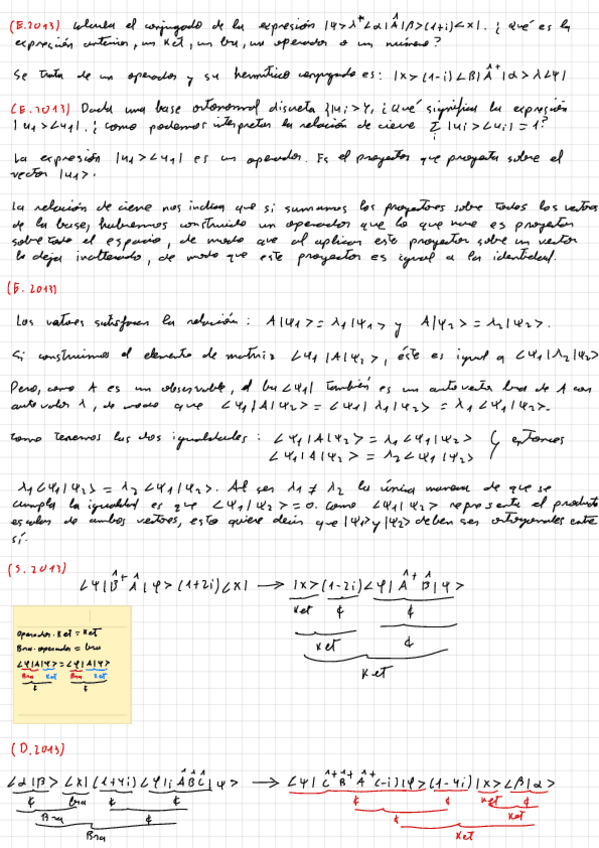 (E.2013) Calcula el conjugado de la expresión |Ψ>λ*<α|Â|β>(1+i)<χ|. ¿Qué es la
expresión anterior, un ket, un bra, un operador o un número?
Se trata de un operador y su hermítico conjugado es: |χ>(1-i)<β|Â⁺|α>λ<Ψ|
(E.2013) Dada una base ortonormal discreta {|ui>}, ¿Qué significa la expresión
|u1><u1|. ¿Como podemos interpretar la relación de cierre Σi |ui><ui| = 1?
La expresión |u1><u1| es un operador. Es el proyector que proyecta sobre el
vector |u1>.
La relación de cierre nos indica que si sumamos los proyectores sobre todos los vectores
de la base, habremos construido un operador que lo que hace es proyectar
sobre todo el espacio, de modo que al aplicar este proyector sobre un vector
lo deja inalterado, de modo que este proyector es igual a la identidad.
(E.2013)
Los vectores satisfacen la relación: A|Ψ1> = λ1|Ψ1> y A|Ψ2> = λ2|Ψ2>.
Si construimos el elemento de matriz <Ψ1|A|Ψ2>, éste es igual a <Ψ1|λ2|Ψ2>
Pero, como A es un observable, el bra <Ψ1| también es un autovector bra de A con
autovalor λ, de modo que <Ψ1|A|Ψ2> = <Ψ1|λ1|Ψ2> = λ1<Ψ1|Ψ2>.
Como tenemos las dos igualdades: <Ψ1|A|Ψ2> = λ1<Ψ1|Ψ2> } entonces
<Ψ1|A|Ψ2> = λ2<Ψ1|Ψ2>
λ1<Ψ1|Ψ2> = λ2<Ψ1|Ψ2>. Al ser λ1 ≠ λ2 la única manera de que se
cumpla la igualdad es que <Ψ1|Ψ2> = 0. Como <Ψ1|Ψ2> representa el producto
escalar de ambos vectores, esto quiere decir que |Ψ1> y |Ψ2> deben ser ortogonales entre
sí.
(S.2013)
<Ψ|B̂⁺Â|φ>(1+2i)<χ| → |χ>(1-2i)<φ|Â⁺B̂|Ψ>
ket ¢ ¢
ket ¢
ket
Operador·ket = ket
Bra·operador = bra
<Ψ|A|Ψ> = <Ψ|A|Ψ>
Bra ket Bra ket
¢ ¢
(D.2013)
<α|β><χ|(1+4i)<φ|iÂB̂Ĉ|Ψ> → <Ψ|Ĉ⁺B̂⁺Â⁺(-i)|φ>(1-4i)|χ><β|α>
¢ bra ¢ ¢ ¢ ¢ ket ¢
Bra ¢ ¢ ket
Bra ket